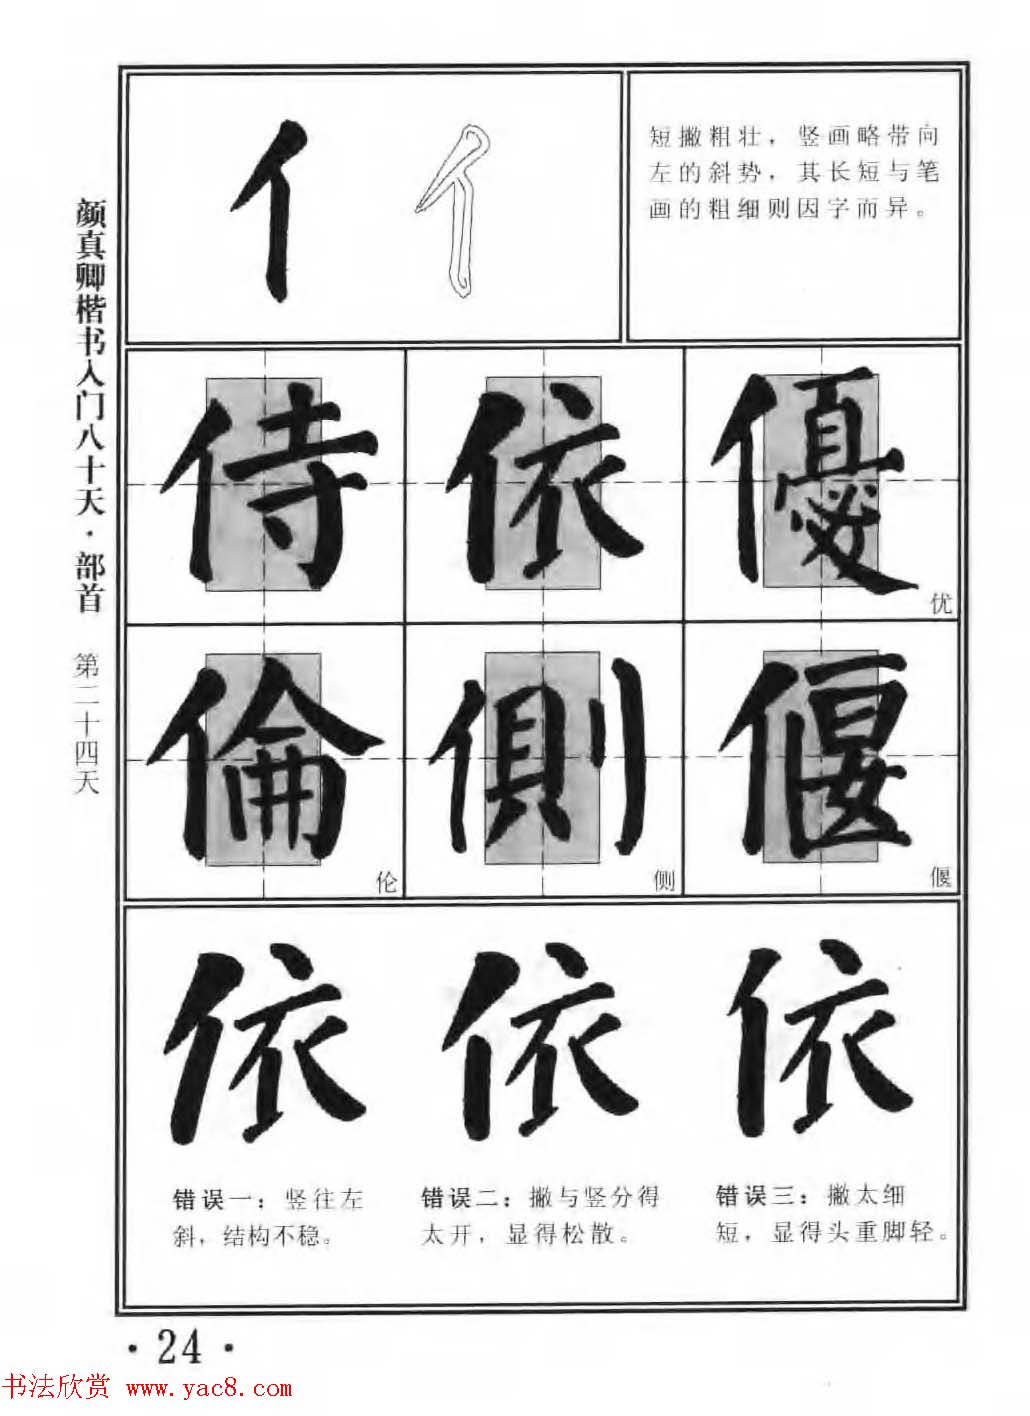 颜真卿楷书入门八十天·部首 第二十四天
亻 亻
短撇粗壮，竖画略带向
左的斜势，其长短与笔
画的粗细则因字而异。
侍 依 優
优
倫 側 偃
伦 侧 偃
依 依 依
错误一：竖往左
斜，结构不稳。
错误二：撇与竖分得
太开，显得松散。
错误三：撇太细
短，显得头重脚轻。
·24·
书法欣赏 www.yac8.com